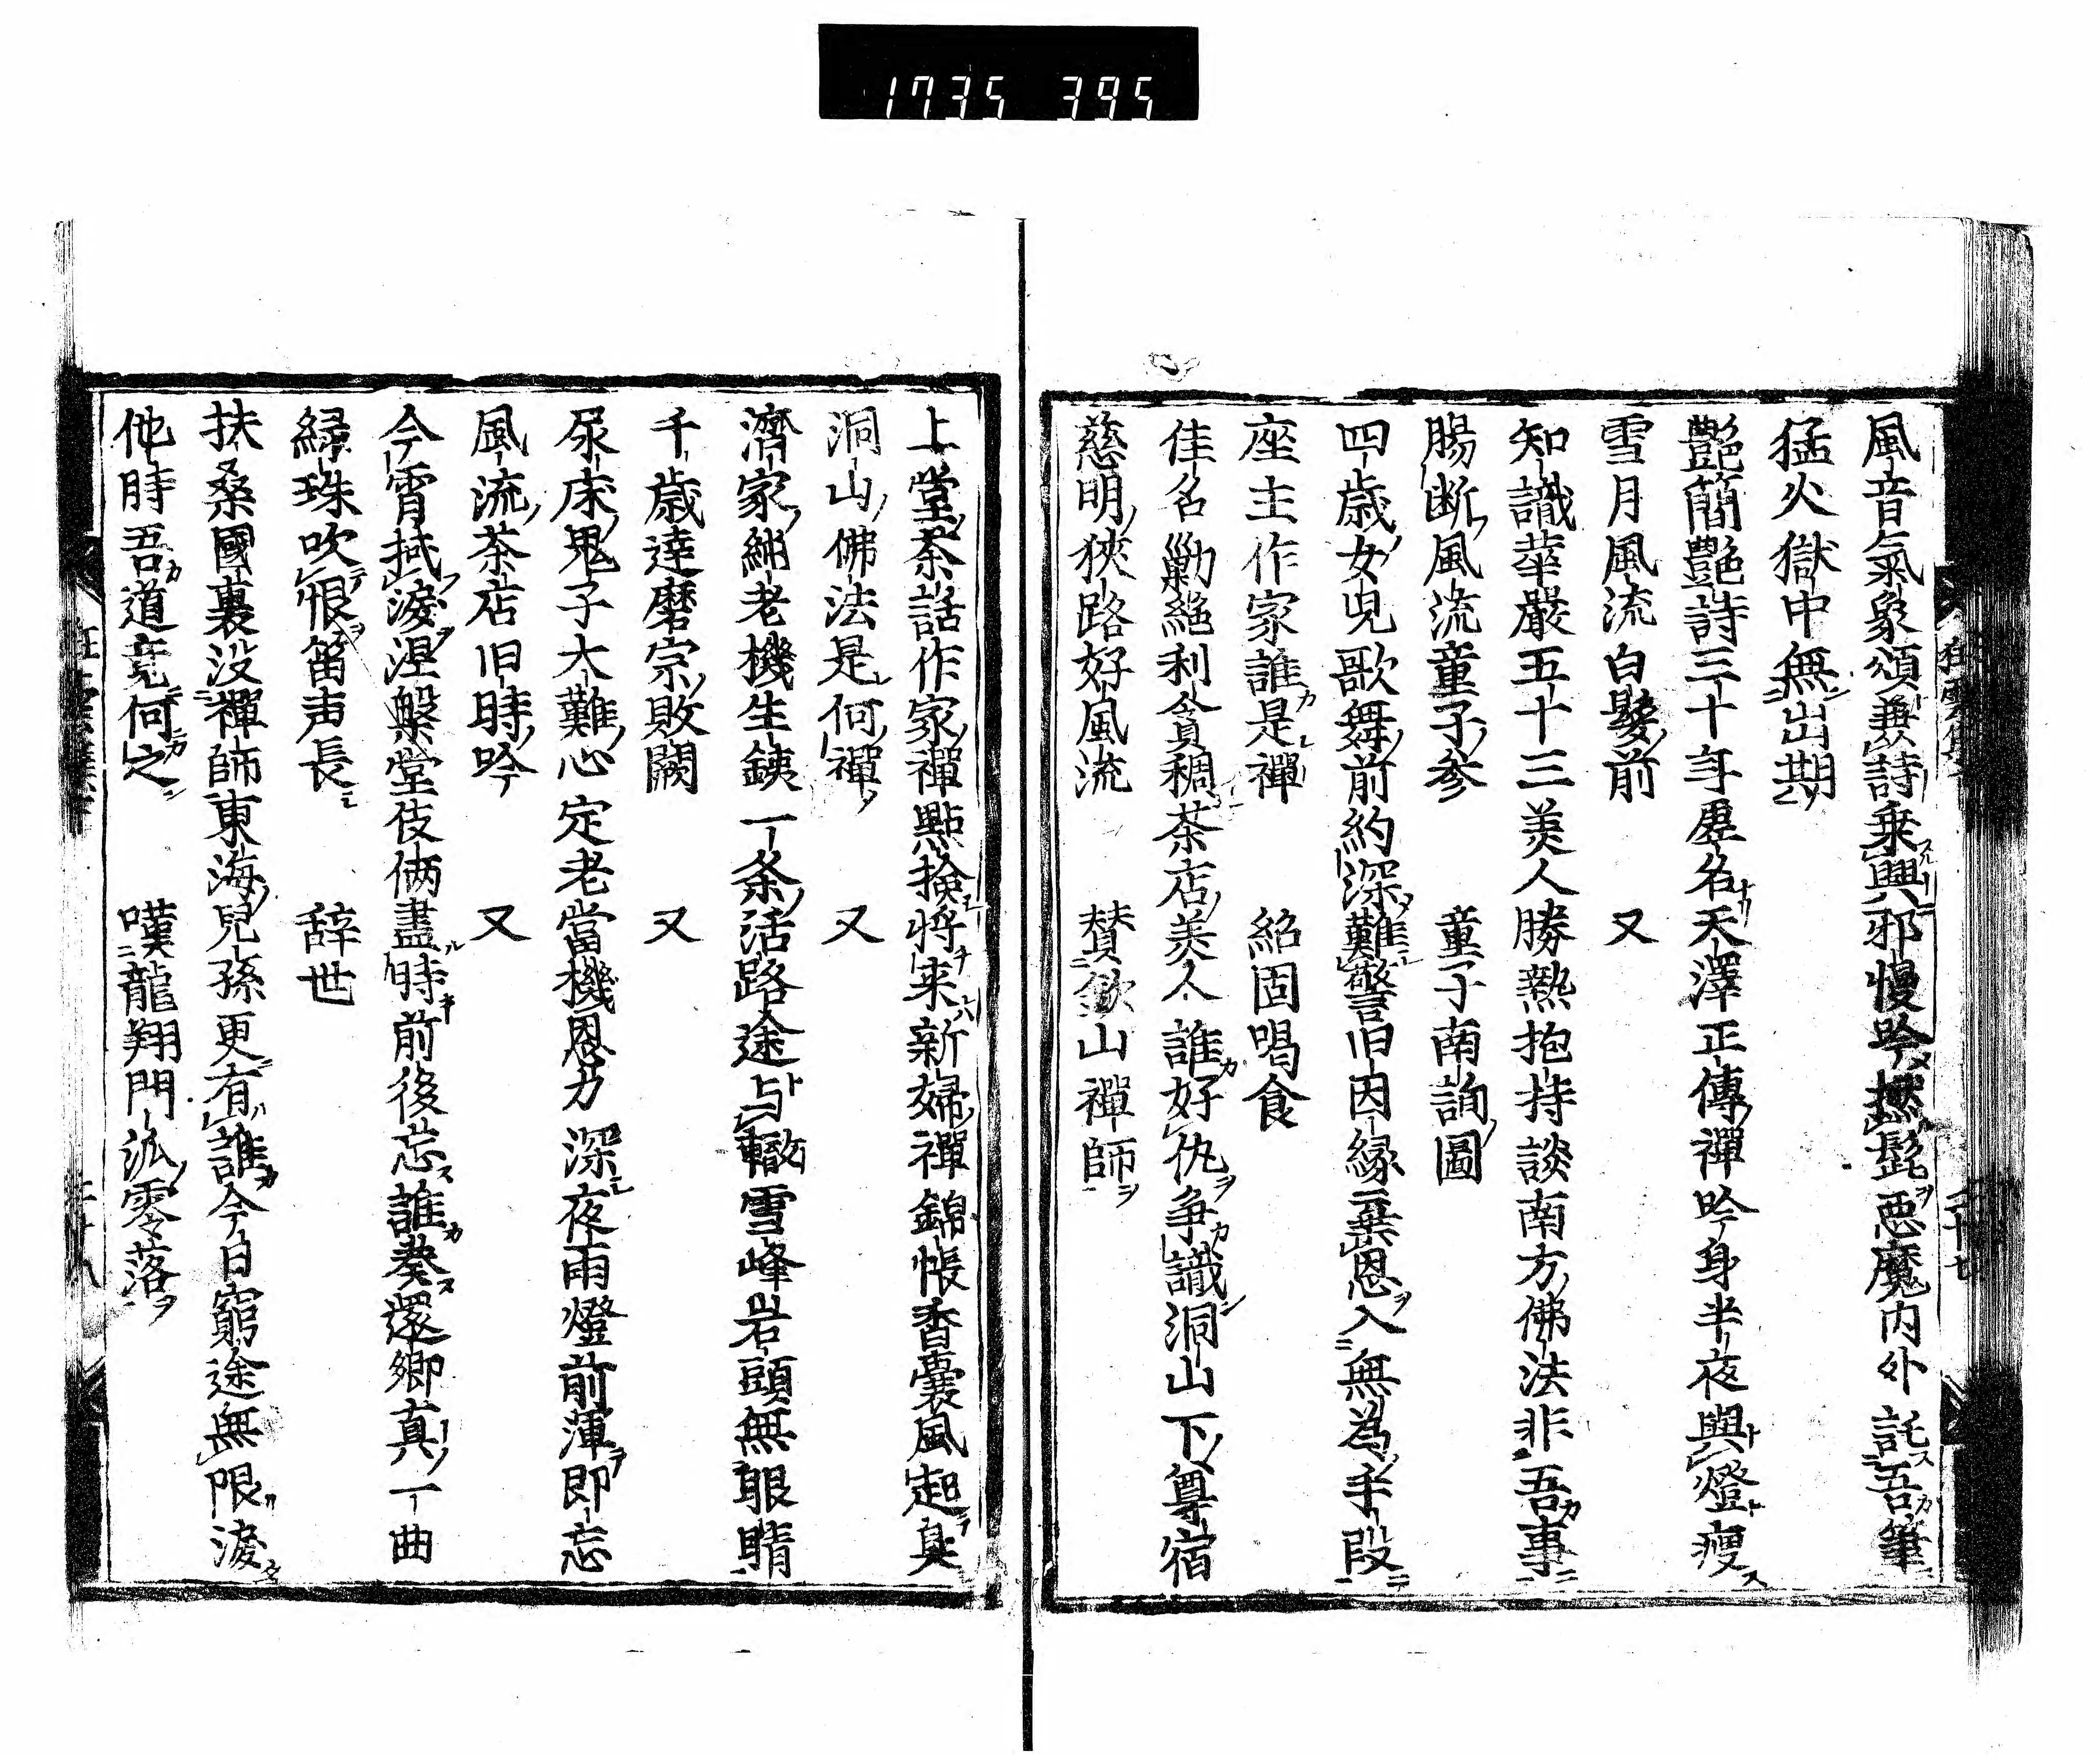 1735 395
風音氣象頌兼詩乗興邪慢吟撚髭悪魔内外託吾筆
猛火獄中無出期
艶簡艶詩三十年虚名天澤正傳禪吟身半夜與燈痩
雪月風流白髪前　又
知識華嚴五十三美人勝熱抱持談南方佛法非吾事
腸断風流童子参　童子南詢圖
四歳女児歌舞前約深難警旧因縁棄恩入無為手段
座主作家誰是禪　紹固喝食
佳名勦絕利貪稠茶店美人誰好仇争識洞山下尊宿
慈明狹路好風流　賛欽山禪師
上堂茶話作家禪點撿将来新婦禪錦帳香嚢風起臭
洞山佛法是何禪　又
濟家綿老機生銕一条活路途与轍雪峰岩頭無眼睛
千歳達磨宗敗闕　又
尿床鬼子大難心定老當機恩力深夜雨燈前渾即忘
風流茶店旧時吟　又
今霄拭淚涅槃堂伎倆盡時前後忘誰奏還郷真一曲
緑珠吹恨笛声長　辞世
扶桑國裏没禪師東海兒孫更有誰今日窮途無限淚
他時吾道竟何之　嘆龍翔門派零落